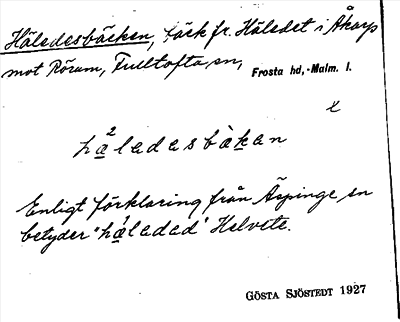 Häledesbäcken, bäck fr. Häledet i Åkarp
mot Rörum, Fulltofta sn, Frosta hd, Malm. l.
hä²ladasbàkan
Enligt förklaring från Äspinge sn
betyder "hä'ladad" Helvete.
GÖSTA SJÖSTEDT 1927